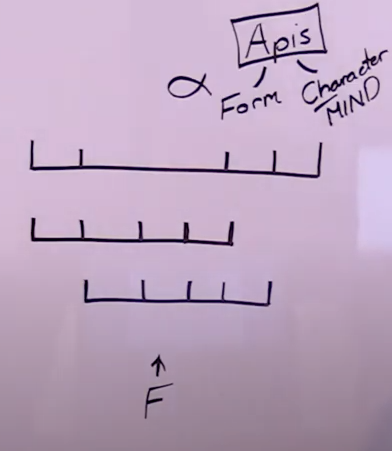 Apis
α Form Character
MIND
F